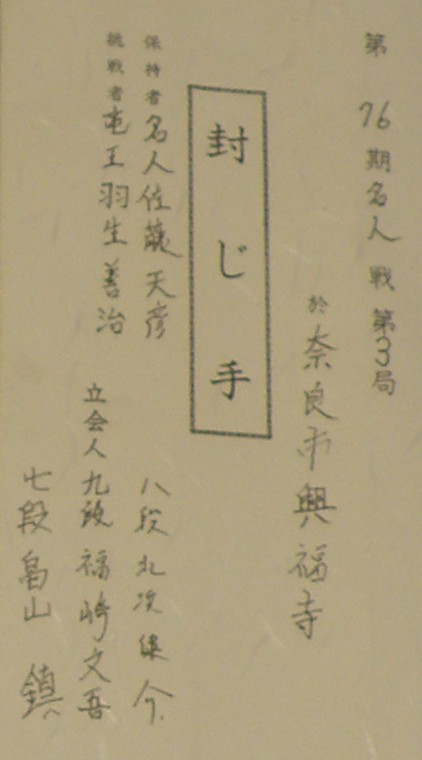 第76期名人戦第3局
於 奈良市興福寺
封じ手
保持者 名人佐蔵天彦
挑戦者 竜王羽生善治
八段北浜健介
立会人 九段 福崎文吾
七段 畠山 鎮